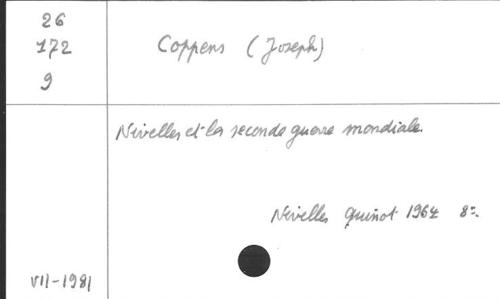 26
172
9
Coppens (Joseph)
Nivelles et la seconde guerre mondiale.
Nivelles Guinot 1964 8=.
VII-1981